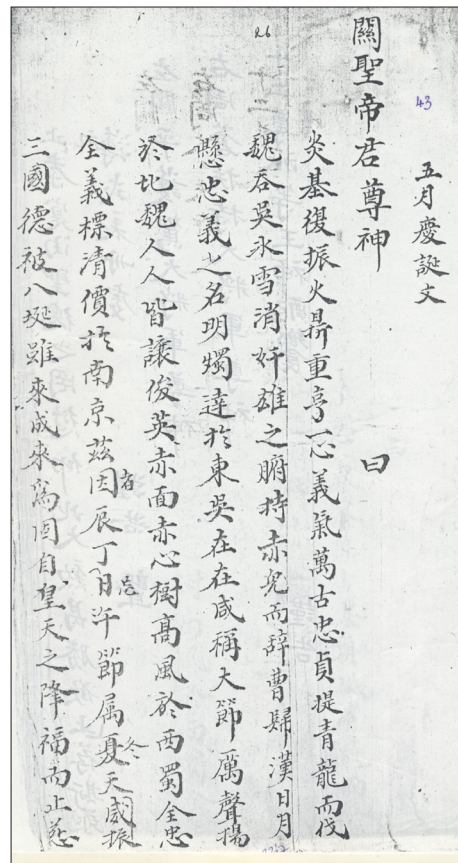 26
43
五月慶誕文
關聖帝君尊神 曰
炎基復振火鼎重亨一心義氣萬古忠貞提青龍而伐
魏吞吳氷雪消奸雄之腑持赤兔而辞曹歸漢日月
懸忠義之名明燭達於東吳在在咸称大節厲聲揚
於北魏人人皆讓俊英赤面赤心樹高風於西蜀全忠
全義標清價於南京茲因辰丁日節属夏天威振
三國德被八埏雖來成來自皇天之降福而止